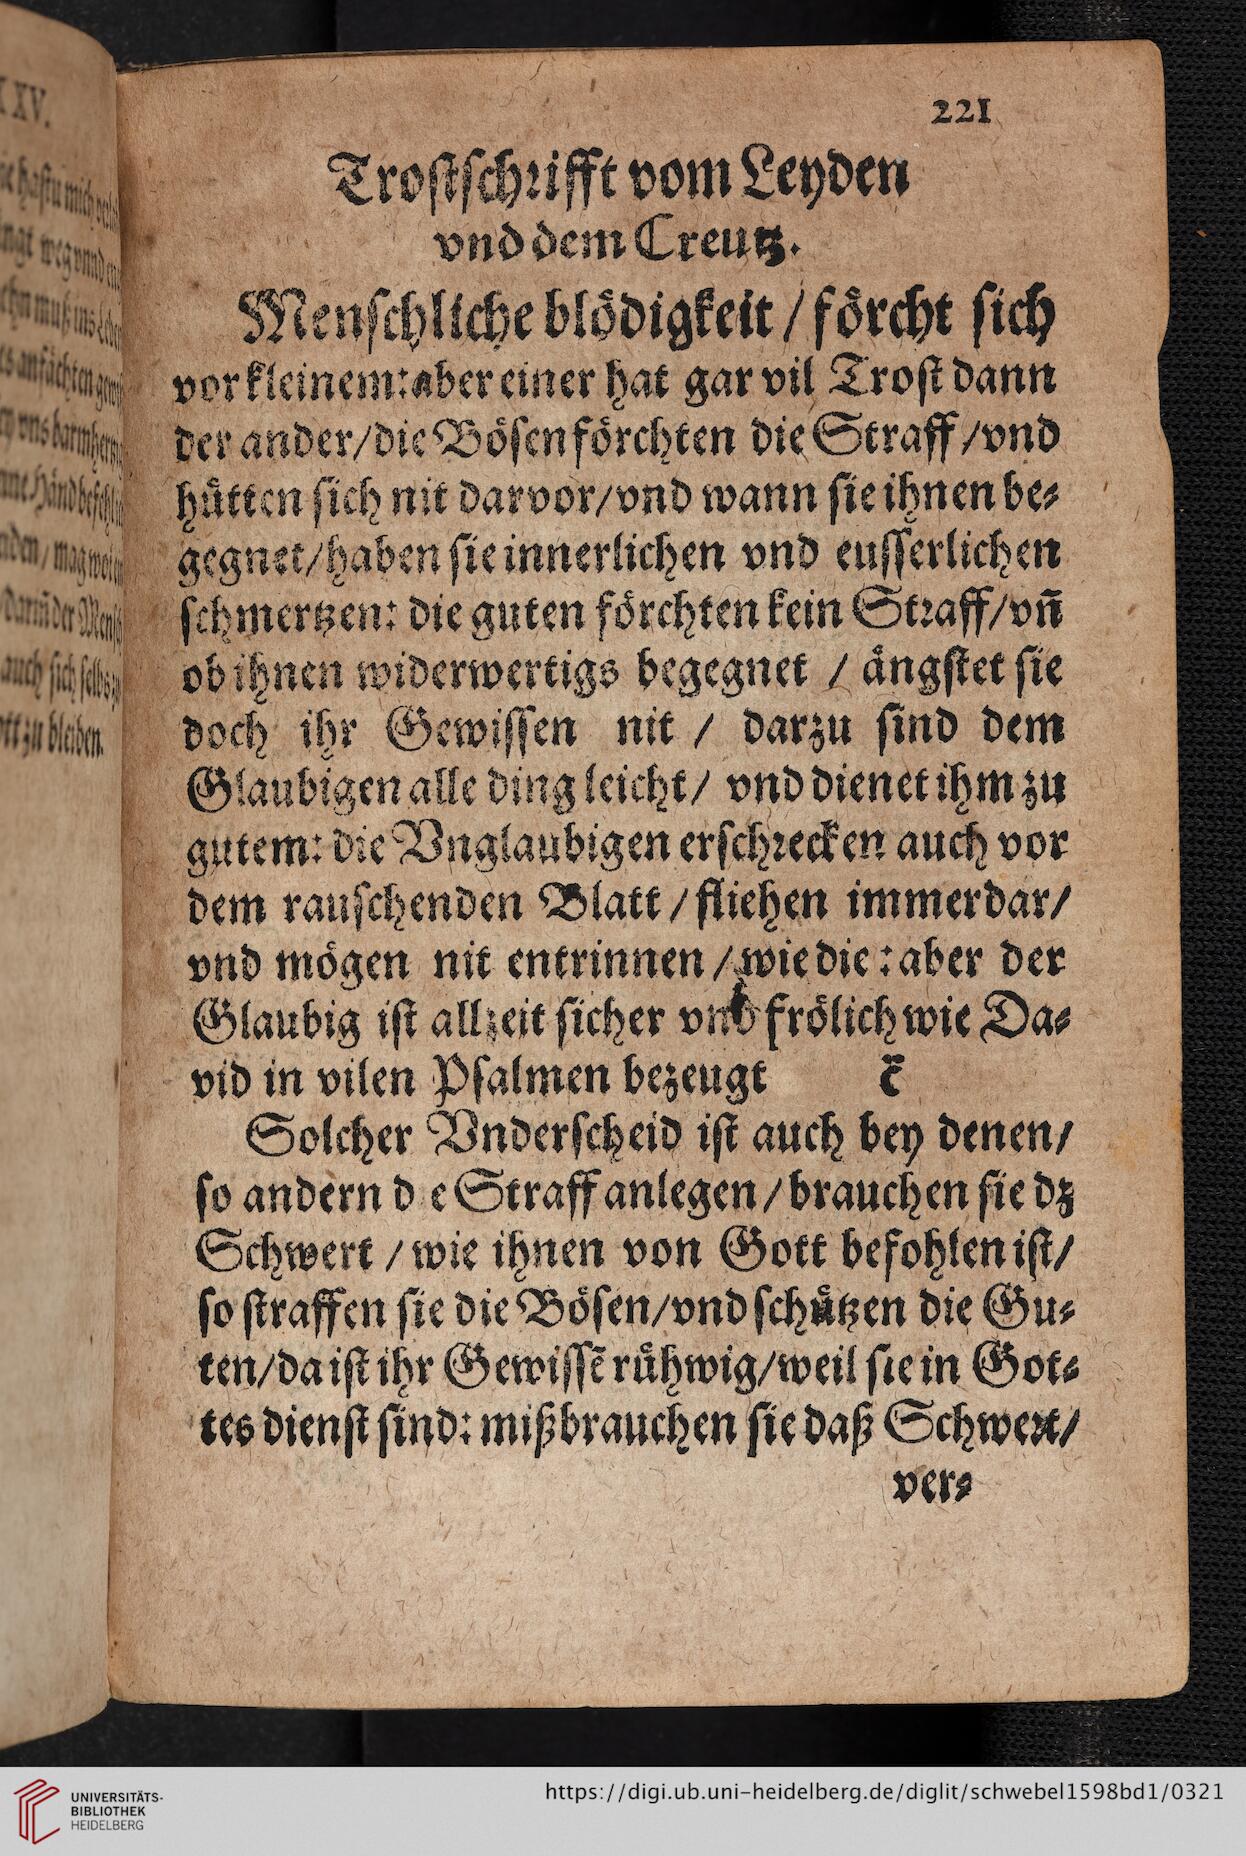 221
Trostschrifft vom Leyden
vnd dem Creutz.
Menschliche blödigkeit / förcht sich
vor kleinem: aber einer hat gar vil Trost dann
der ander/die Bösen förchten die Straff /vnd
hütten sich nit darvor/vnd wann sie ihnen be⸗
gegnet/haben sie innerlichen vnd eusserlichen
schmertzen: die guten förchten kein Straff/vn̄
ob ihnen widerwertigs begegnet / ängstet sie
doch ihr Gewissen nit / darzu sind dem
Glaubigen alle ding leicht/ vnd dienet ihm zu
gutem: die Vnglaubigen erschrecken auch vor
dem rauschenden Blatt / fliehen immerdar/
vnd mögen nit entrinnen / wie die : aber der
Glaubig ist allzeit sicher vnd frölich wie Da⸗
vid in vilen Psalmen bezeugt
Solcher Vnderscheid ist auch bey denen/
so andern d e Straff anlegen / brauchen sie dz
Schwert / wie ihnen von Gott befohlen ist/
so straffen sie die Bösen/vnd schützen die Gu⸗
ten/da ist ihr Gewissē rühwig/weil sie in Got⸗
tes dienst sind: mißbrauchen sie daß Schwert/
ver⸗
XV.
zu bleiben.
UNIVERSITÄTS-
BIBLIOTHEK
HEIDELBERG
https://digi.ub.uni-heidelberg.de/diglit/schwebel1598bd1/0321